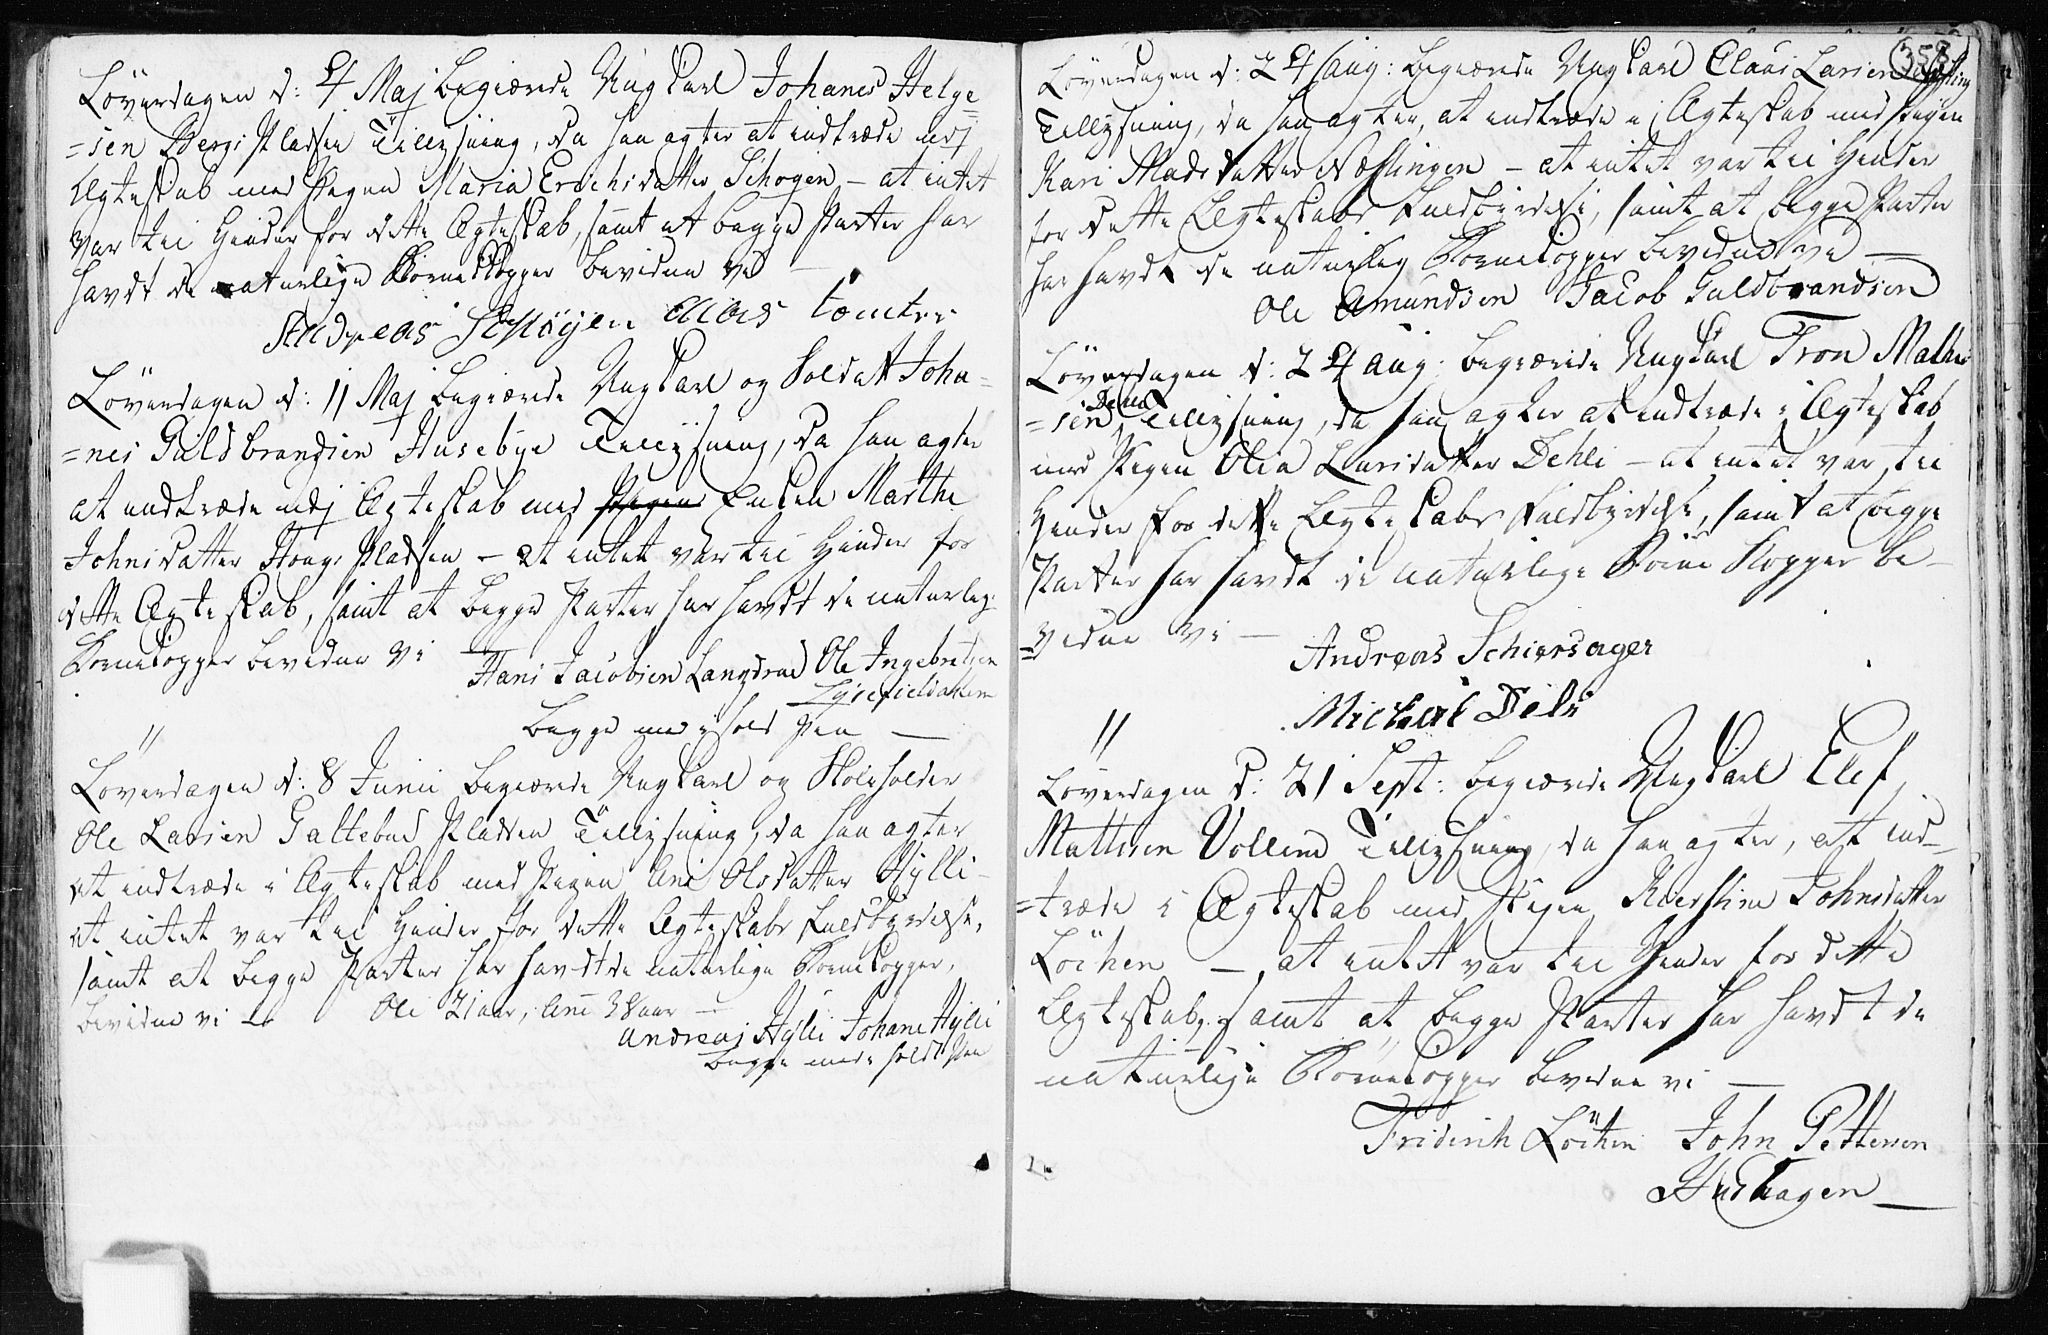 Löverdagen d: 4 Maj begiærede Ungkarl Johanes Helge=
=sen Bergs Pladsen Tillysning, da han agter at indtræde udj
Ægteskab med Pigen Maria Erichsdatter Schogen – at intet
var til Hinder for dette Ægteskab, samt at begge Parter har
havdt de naturlige Børnekopper bevidne vi –
Andreas Schöyen Elias Tomter
Löverdagen d: 11 Maj begiærede Ungkarl og Soldat Joha=
=nes Guldbrandsen Husebye Tillysning, da han agter
at indtræde udj Ægteskab med Enken Marthe
Johnsdatter Hougs Pladsen – at intet var til Hinder for
dette Ægteskab, samt at begge Parter har havdt de naturlig:
Børnekopper bevidne vi Hans Jacobsen Langdrud Ole Ingebretsen
Lysefieldalen
begge med i hold Pen –
Löverdagen d: 8 Junii begiærede Ungkarl og
Ole Larsen Galtebud Pladsen Tillysning, da han agter
at indtræde i Ægteskab med Pigen Ane Olsdatter Hylli –
at intet var til Hinder for dette Ægteskabs Fuldbyrdelse,
samt at begge Parter har havdt de naturlige Børnekopper,
bevidne vi – Ole 21 aar, Ane 38 aar –
Andreas Hylli Johane Hylli
begge med i hold Pen
358
Löverdagen d: 24 Aug: begiærede Ungkarl Claus Larsen
Tillysning, da han agter, at indtræde i Ægteskab med Pigen
Kari Madsdatter Næslingen – at intet var til Hinder
for dette Ægteskabs Fuldbyrdelse, samt at begge Parter
har havdt de naturlig Børnekopper bevidne vi –
Ole Amundsen Jacob Guldbrandsen
Löverdagen d: 24 Aug: begiærede Ungkarl Tron Mathi
=sen Dehli Tillysning, da han agter at indtræde i Ægteskab
med Pigen Olea Larsdatter Dehli – at intet var til
Hinder for dette Ægteskabs Fuldbyrdelse, samt at begge
Parter har havdt de naturlige Börne Kopper be –
=vidne vi – Andreas Schiersager
Michael Deli
Löverdagen d: 21 Sept: begiærede Ungkarl Elef
Mattisen Vollene Tillysning, da han agter, at ind –
=træde i Ægteskab med Pigen Kierstine Johnsdatter
Löchen – at intet var til Hinder for dette
Ægteskab, samt at begge Parter har havdt de
naturlige Börnekopper bevidne vi –
Friderich Löchen John Pettersen
Hushagen –